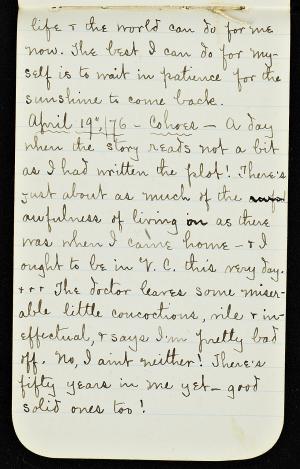 life & the world can do for me
now. The best I can do for my-
self is to wait in patience for the
sunshine to come back.
April 19", /76 - Cohoes - A day
when the story reads not a bit
as I had written the plot! There's
just about as much of the
awfulness of living on as there
was when I came home - & I
ought to be in V. C. this very day.
+ + + The doctor leaves some miser-
able little concoctions, vile & in-
effectual, & says I'm pretty bad
off. No, I aint neither! There's
fifty years in me yet - good
solid ones too!